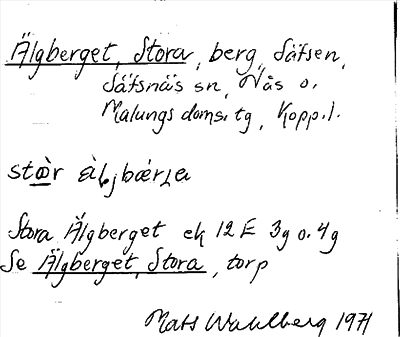 Älgberget, Stora, berg, Säfsen,
Säfsnäs sn, Nås o.
Malungs doms. tg, Kopp. l.
stɷ̀r àljbærɹa
Stora Älgberget ek 12 E 3g o. 4g
Se Älgberget, Stora, torp
Mats Wahlberg 1971